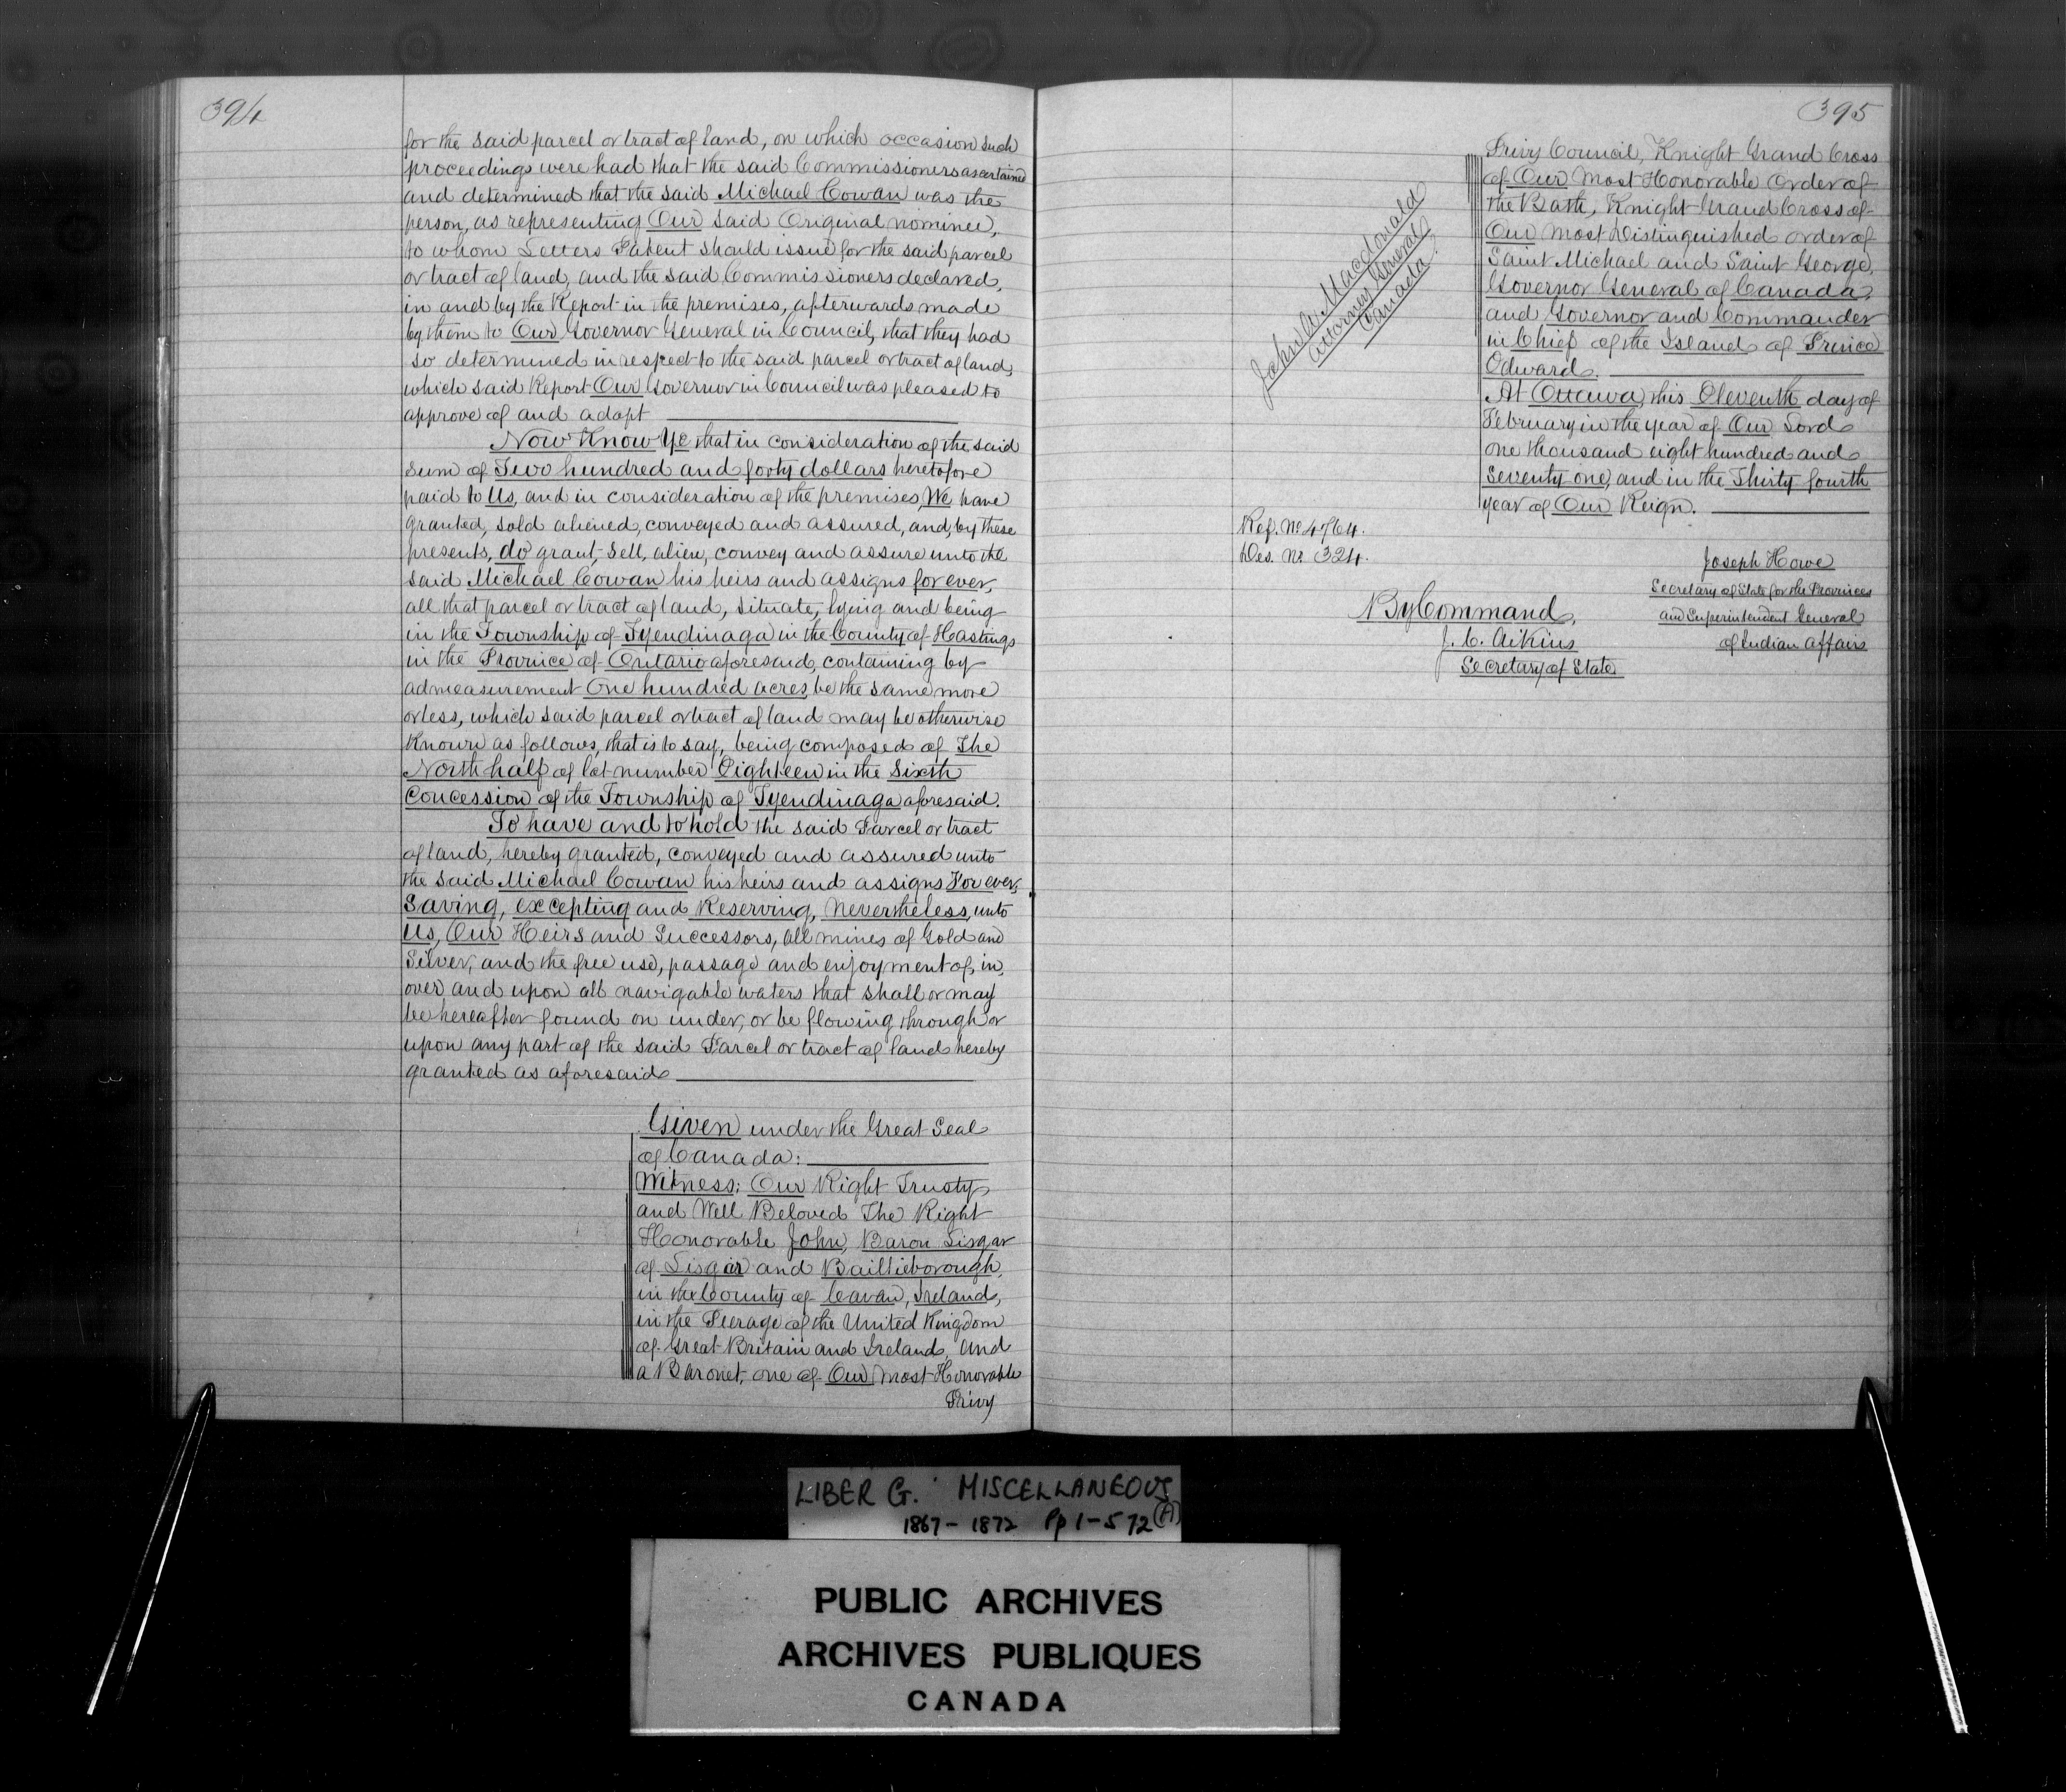 394
for the said parcel or tract of land, on which occasion such
proceedings were had that the said Commissioners ascertained
and determined that the said Michael Cowan was the
person, as representing Our said Original nominee,
to whom Letters Patent should issue for the said parcel
or tract of land, and the said Commissioners declared,
in and by the Report in the premises, afterwards made
by them to Our Governor General in Council, that they had
so determined in respect to the said parcel or tract of land,
which said Report Our Governor in Council was pleased to
approve of and adopt
Now Know Ye that in consideration of the said
sum of Two hundred and forty dollars heretofore
paid to Us, and in consideration of the premises, We have
granted, sold aliened, conveyed and assured, and, by these
presents, do grant, sell, alien, convey and assure unto the
said Michael Cowan his heirs and assigns for ever,
all that parcel or tract of land, situate, lying and being
in the Township of Tyendinaga in the County of Hastings
in the Province of Ontario aforesaid, containing by
admeasurement One hundred acres, be the same more
or less, which said parcel or tract of land may be otherwise
Known as follows, that is to say, being composed of The
North half of lot number Eighteen in the Sixth
Concession of the Township of Tyendinaga aforesaid.
To have and to hold the said Parcel or tract
of land, hereby granted, conveyed and assured unto
the said Michael Cowan his heirs and assigns For ever;
Saving, excepting and Reserving, Nevertheless, unto
Us, Our Heirs and Successors, all mines of Gold and
Silver, and the free use, passage and enjoyment of, in,
over and upon all navigable waters that shall or may
be hereafter found on under, or be flowing through or
upon any part of the said Parcel or tract of land hereby
granted as aforesaid
Given under the Great Seal
of Canada:
Witness: Our Right Trusty
and Well Beloved The Right
Honorable John, Baron Lisgar
of Lisgar and Bailieborough,
in the County of Cavan, Ireland,
in the Peerage of the United Kingdom
of Great Britain and Ireland, and
a Baronet, one of Our most Honorable
Privy
395
Privy Council, Knight Grand Cross
of Our Most Honorable Order of
the Bath, Knight Grand Cross of
Our most Distinguished order of
Saint Michael and Saint George,
Governor General of Canada,
and Governor and Commander
in Chief of the Island of Prince
Edward.
At Ottawa, this Eleventh day of
February in the year of Our Lord
one thousand eight hundred and
Seventy one, and in the Thirty fourth
year of Our Reign.
John A. Macdonald
Attorney General
Canada
Ref. No. 4764.
Des. No. 324.
Joseph Howe
Secretary of State for the Provinces
and Superintendent General
of Indian Affairs
By Command,
J. C. Aikins
Secretary of State
LIBER G. MISCELLANEOUS
1867 - 1872 Pp 1-572 (A)
PUBLIC ARCHIVES
ARCHIVES PUBLIQUES
CANADA